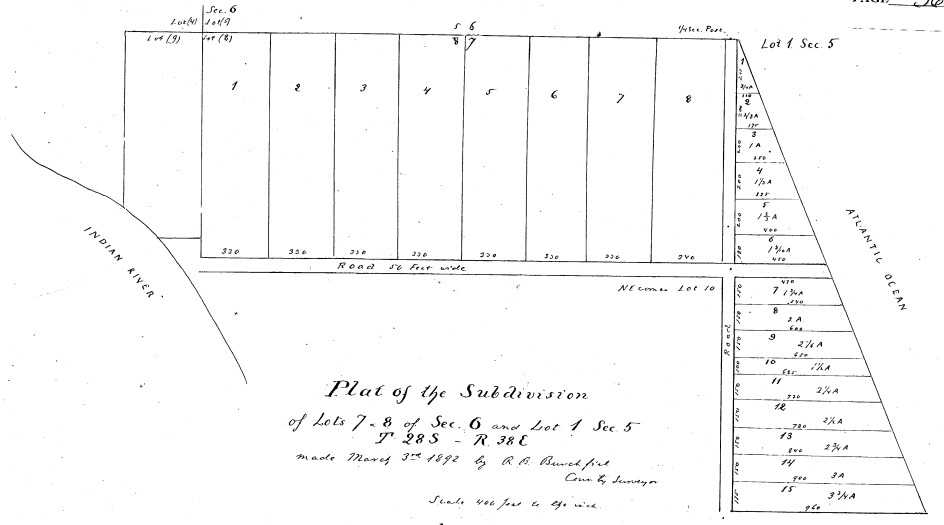 Sec. 6
Lot (4) Lot (5)
Lot (9) Lot (8)
5 6
8 7
1/4 Sec. Post.
Lot 1. Sec. 5
1 2 3 4 5 6 7 8
330 330 330 330 330 330 340
Road 50 Feet wide
NE corner Lot 10
INDIAN RIVER
ATLANTIC OCEAN
Road
1
3/4 A
110
2
2/3 A
175
3
200
1 A
250
4
200
1 1/3 A
325
5
200
1 2/3 A
400
6
150
450
470
7
150
1 3/4 A
540
8
150
2 A.
600
9
150
2 1/4 A
650
10
100
685
11
150
2 1/4 A
730
12
150
2 1/2 A
780
13
150
2 3/4 A
840
14
150
3 A
900
15
3 3/4 A
960
Plat of the Subdivision
of Lots 7 & 8 of Sec. 6 and Lot 1 Sec. 5
T 28 S - R. 38 E
made March 3rd 1892 by R. B. Burchfiel
County Surveyor
Scale 400 feet to the inch.